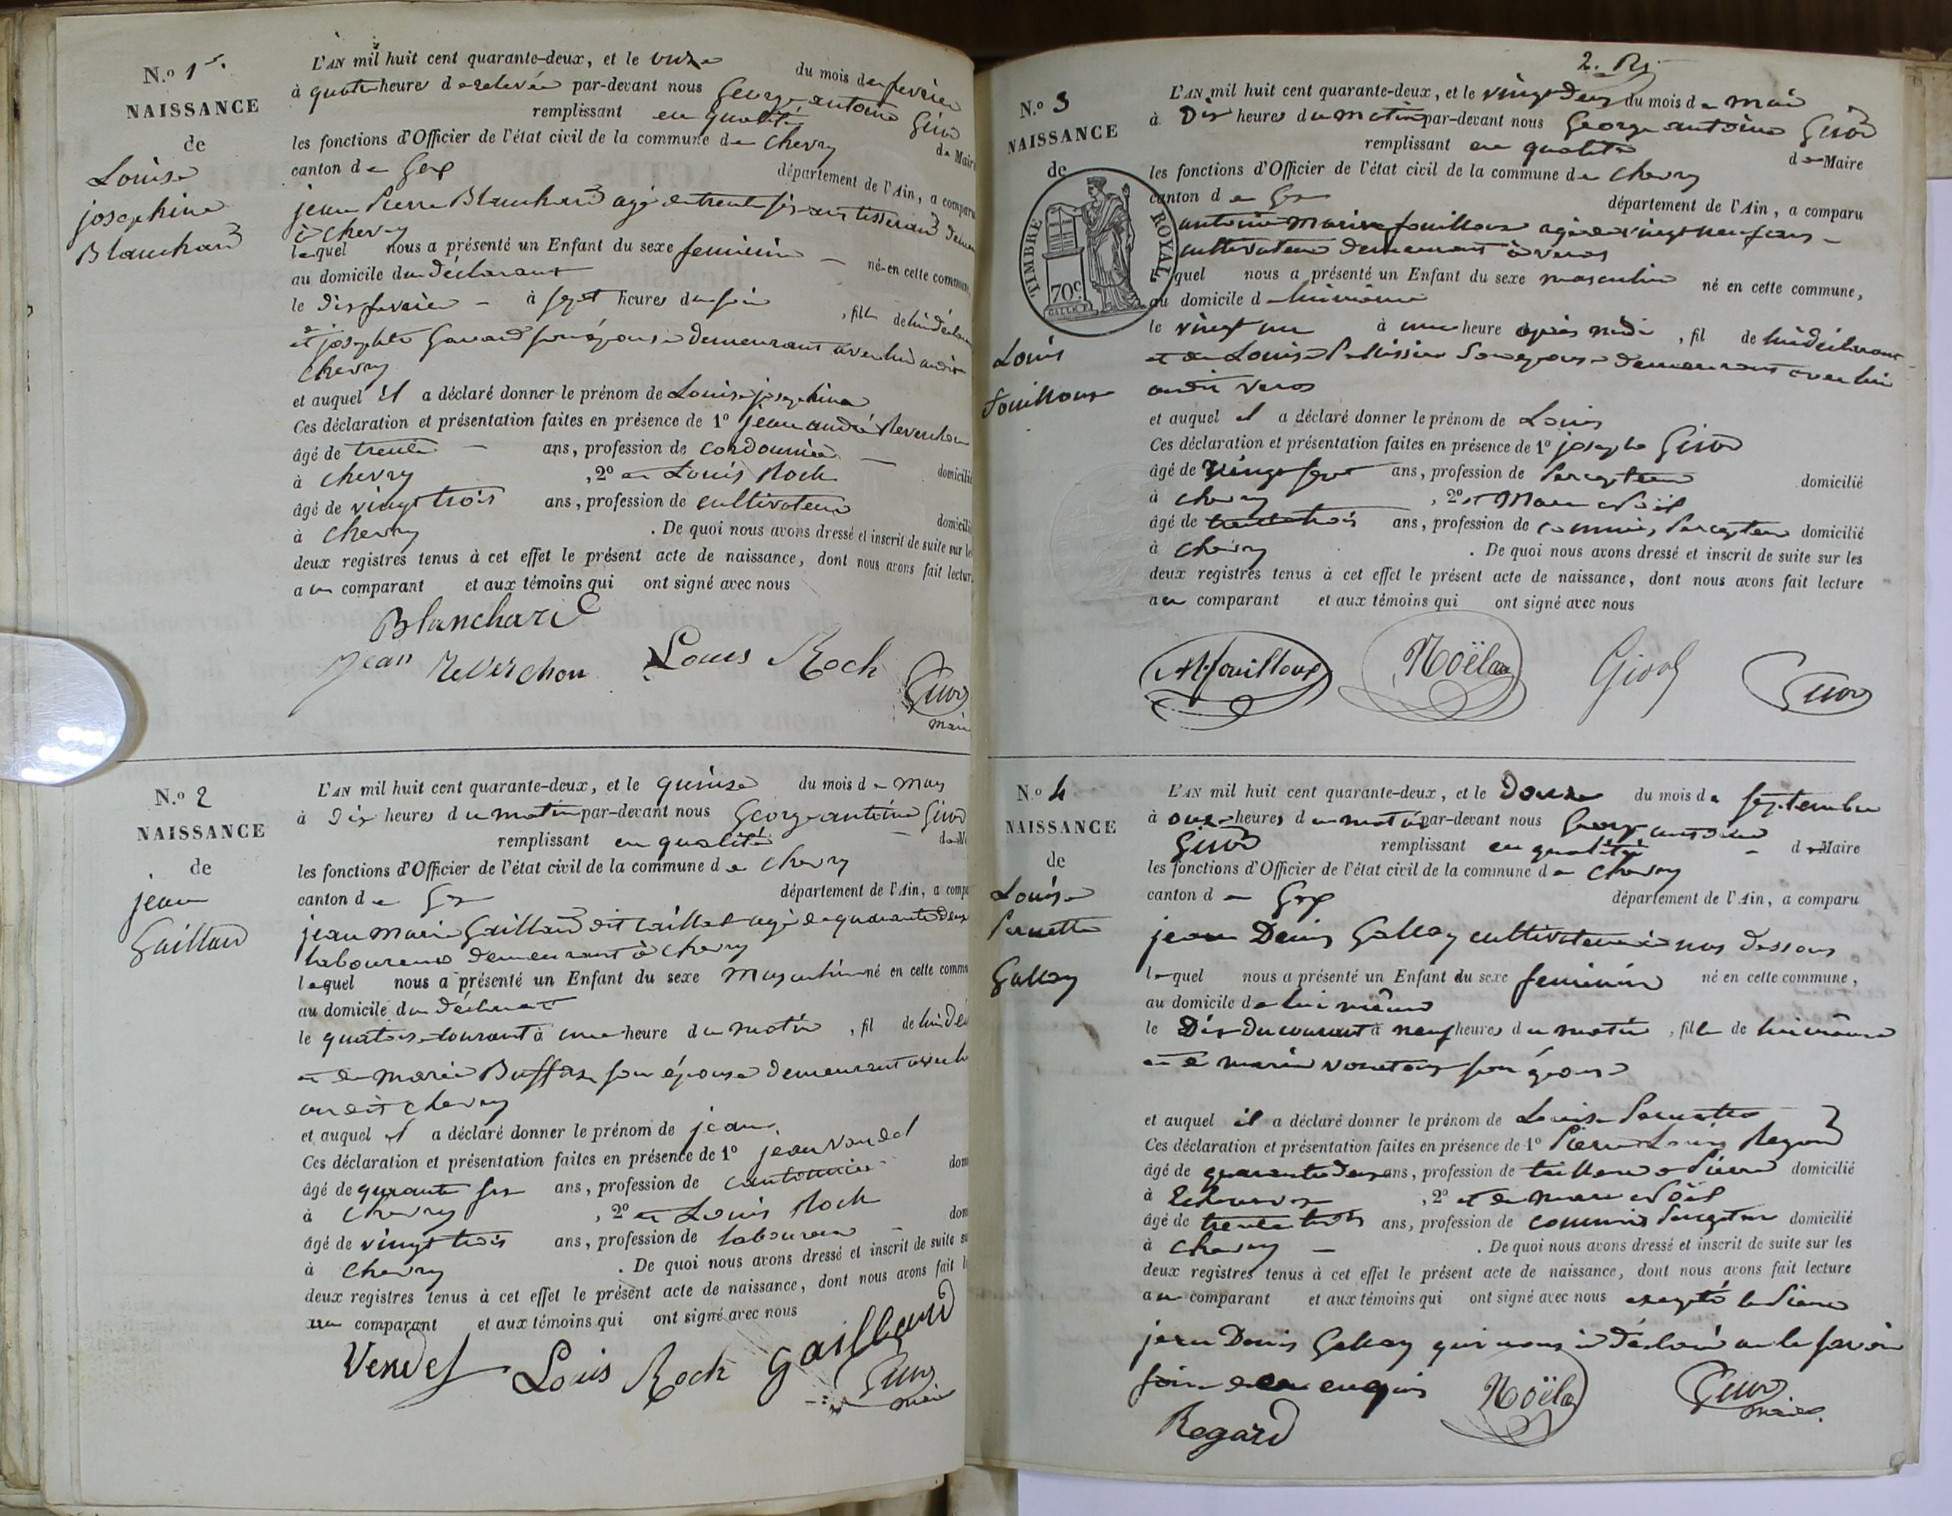 N.º 1er
NAISSANCE
de
Louise
josephine
Blanchard
L'AN mil huit cent quarante-deux, et le onze du mois de fevrier
à quatre heures de relevée par-devant nous George antoine Girod
remplissant en qualité de Maire
les fonctions d'Officier de l'état civil de la commune de Chevry
canton de Gex département de l'Ain, a comparu
jean Pierre Blanchard agé de trente six ans tisserand
à Chevry
lequel nous a présenté un Enfant du sexe feminin né en cette commune,
au domicile du déclarant
le dix fevrier à sept heures du soir, fille de lui déclarant
et josephte son épouse demeurant avec lui audit
Chevry
et auquel il a déclaré donner le prénom de Louise josephine
Ces déclaration et présentation faites en présence de 1º jean andré Reverchon
âgé de trente ans, profession de cordonnier domicilié
à Chevry, 2º et Louis Roch
âgé de vingt trois ans, profession de cultivateur domicilié
à Chevry. De quoi nous avons dressé et inscrit de suite sur les
deux registres tenus à cet effet le présent acte de naissance, dont nous avons fait lecture
au comparant et aux témoins qui ont signé avec nous
Blanchard
jean Reverchon Louis Roch Girod
maire
N.º 2
NAISSANCE
de
jean
Gaillard
L'AN mil huit cent quarante-deux, et le quinze du mois de may
à Dix heures du matin par-devant nous George antoine Girod
remplissant en qualité de
les fonctions d'Officier de l'état civil de la commune de Chevry
canton de Gex département de l'Ain, a compa
jean marie Gaillard dit caillat agé de quarante deux
laboureur demeurant à Chevry
lequel nous a présenté un Enfant du sexe Masculin né en cette commu
au domicile du déclarant
le quatorze courant à une heure du matin, fil de lui décl
et de marie Buffaz son épouse demeurant avec lui
audit Chevry
et auquel il a déclaré donner le prénom de jean
Ces déclaration et présentation faites en présence de 1º jean Vendel
âgé de quarante six ans, profession de cantonnier dom
à Chevry, 2º et Louis Roch
âgé de vingt trois ans, profession de laboureur dom
à Chevry. De quoi nous avons dressé et inscrit de suite su
deux registres tenus à cet effet le présent acte de naissance, dont nous avons fait l
au comparant et aux témoins qui ont signé avec nous
Vendel Louis Roch Gaillard
Girod
maire
2.
N.º 3
NAISSANCE
de
TIMBRE ROYAL
70c
Louis
Fouilloux
L'AN mil huit cent quarante-deux, et le vingt deux du mois de mai
à Dix heures du matin par-devant nous George antoine Girod
remplissant en qualité de Maire
les fonctions d'Officier de l'état civil de la commune de Chevry
canton de Gex département de l'Ain, a comparu
antoine Marie fouilloux agé de vingt neuf ans
cultivateur demeurant à veros
quel nous a présenté un Enfant du sexe masculin né en cette commune,
au domicile de lui même
le vingt un à une heure après midi, fil de lui déclarant
et de Louise Pellissier son épouse demeurant avec lui
audit veros
et auquel il a déclaré donner le prénom de Louis
Ces déclaration et présentation faites en présence de 1º joseph Girod
âgé de vingt sept ans, profession de Percepteur domicilié
à Chevry, 2º et Marc Noël
âgé de trente trois ans, profession de commis Percepteur domicilié
à Chevry. De quoi nous avons dressé et inscrit de suite sur les
deux registres tenus à cet effet le présent acte de naissance, dont nous avons fait lecture
au comparant et aux témoins qui ont signé avec nous
AM fouilloux Noël Girod Girod
N.º 4
NAISSANCE
de
Louise
Pernette
Gallay
L'AN mil huit cent quarante-deux, et le Douze du mois de septembre
à onze heures du matin par-devant nous George antoine
Girod remplissant en qualité de Maire
les fonctions d'Officier de l'état civil de la commune de Chevry
canton de Gex département de l'Ain, a comparu
jean Denis Gallay cultivateur à nas dessous
lequel nous a présenté un Enfant du sexe feminin né en cette commune,
au domicile de lui même
le Dix du courant à neuf heures du matin, fille de lui même
et de marie son épouse
et auquel il a déclaré donner le prénom de Louise Pernette
Ces déclaration et présentation faites en présence de 1º Pierre Louis Regard
âgé de quarante deux ans, profession de tailleur de Pierre domicilié
à Echenevex, 2º et de marc Noël
âgé de trente trois ans, profession de commis Percepteur domicilié
à Chevry. De quoi nous avons dressé et inscrit de suite sur les
deux registres tenus à cet effet le présent acte de naissance, dont nous avons fait lecture
au comparant et aux témoins qui ont signé avec nous excepté le sieur
jean Denis Gallay qui nous a déclaré ne le savoir
faire de ce enquis Noël Girod
maire
Regard